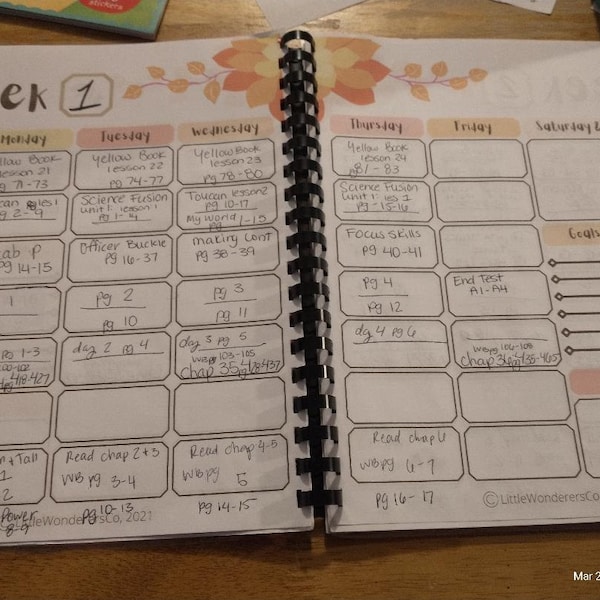 ek 1
Monday
Tuesday
Wednesday
Thursday
Friday
Saturday
Yellow Book
lesson 21
pg 71-73
Yellow Book
lesson 22
pg 74-77
Yellow Book
lesson 23
pg 78-80
Yellow Book
lesson 24
pg 81 - 83
les 1
pg 2-9
Science Fusion
unit 1: lesson 1
pg 1-14
Toucan lesson 2
pg 10-17
My World pg 1-15
Science Fusion
unit 1: les 1
pg - 15-16
Lab P
pg 14-15
Officer Buckle
pg 16-37
making Conf
pg 38-39
Focus Skills
pg 40-41
Goals
1
pg 2
pg 10
pg 3
pg 11
pg 4
pg 12
End Test
A1-A4
pg 1-3
418-427
day 2 pg 4
day 3 pg 5
WB pg 103-105
chap 35.4
day 4 pg 6
WB pg 106-108
chap
& Tall
1
2
Read chap 2 & 3
WB pg 3-4
Read chap 4-5
WB pg 5
Read chap 6
WB pg 6-7
Power
8-9
pg 10-13
pg 14-15
pg 16-17
LittleWonderersCo, 2021
©LittleWonderersCo
stickers
Mar 2